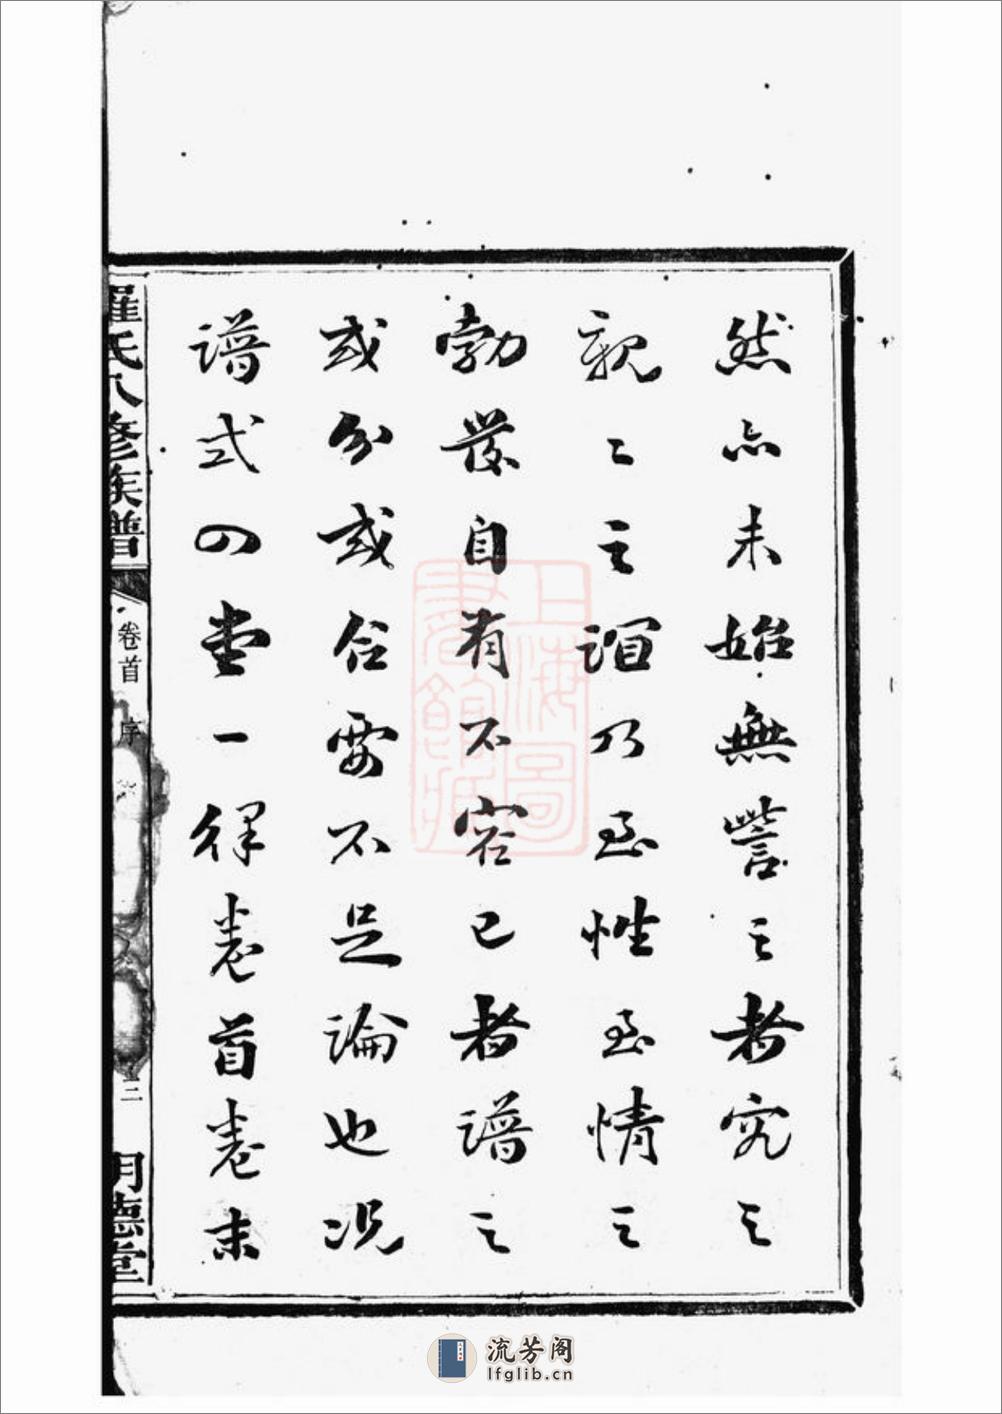 然亦未始無訾之者究之
親〻之誼乃至性至情之
勃發自有不容已者譜之
或分或合要不足論也况
譜式四堂一律卷首卷末
羅氏八修族譜
卷首
序
三
明德堂
上海圖
書館藏
流芳阁
lfglib.cn